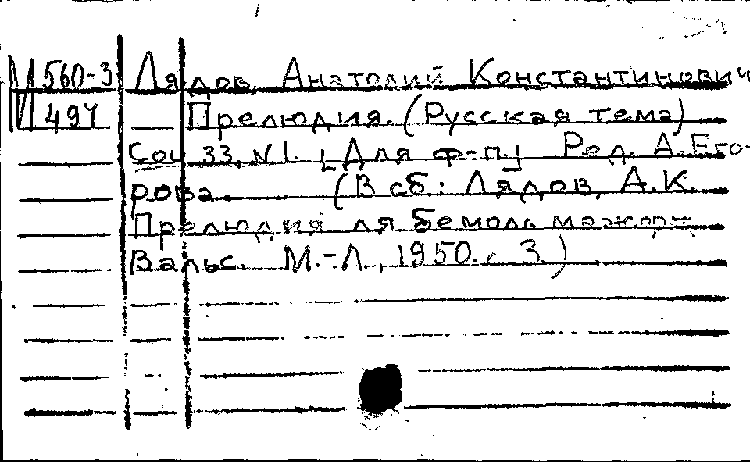 М 560-3 Лядов, Анатолий Константинович
И 494 Прелюдия. (Русская тема)
Соч. 33, N 1. [Для ф-п.] Ред. А. Его-
рова (В сб: Лядов, А.К.
Прелюдия ля бемоль мажор.
Вальс. М.-Л., 1950. с. 3)